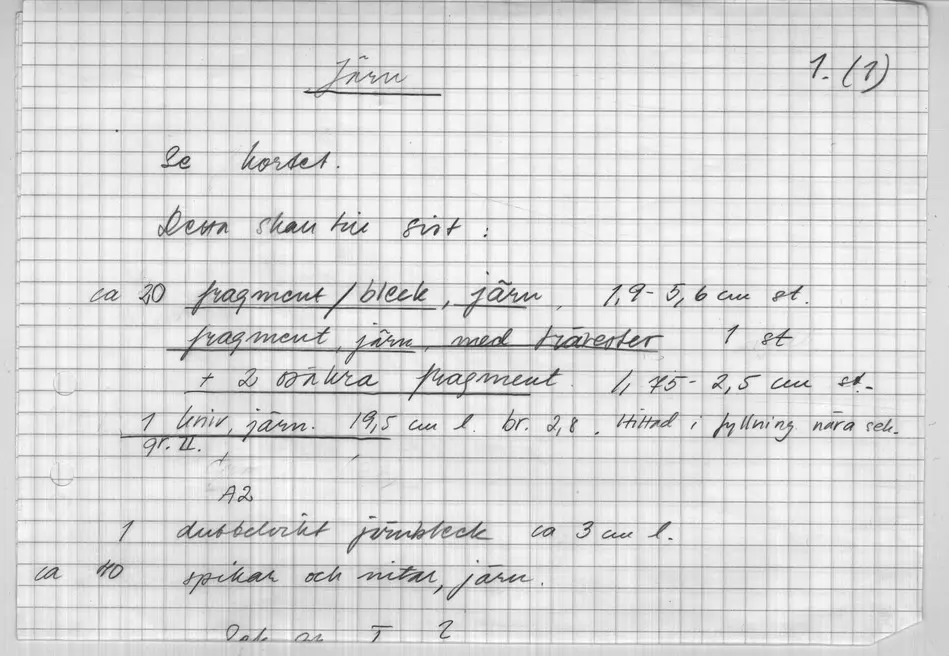 1. (1)
Järn
Se kortet.
Detta skall till sist :
ca 20 fragment / bleck, järn, 1,9 - 5,6 cm st.
fragment, järn, med trärester 1 st
+ 2 osäkra fragment. 1,75 - 2,5 cm st.
1 kniv, järn. 19,5 cm l. br. 2,8. Hittad i fyllning nära sek.
gr. II.
A2
1 dubbelvikt järnbleck ca 3 cm l.
ca 40 spikar och nitar, järn.
I 2